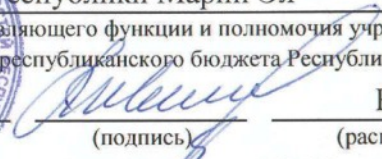 еспублики Марий Эл
вляющего функции и полномочия учр
республиканского бюджета Республи
(подпись)
(расп